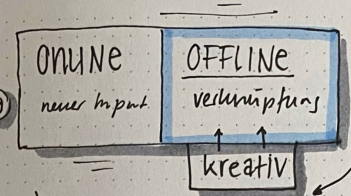 ONLINE
neuer Input
OFFLINE
verknüpfung
kreativ